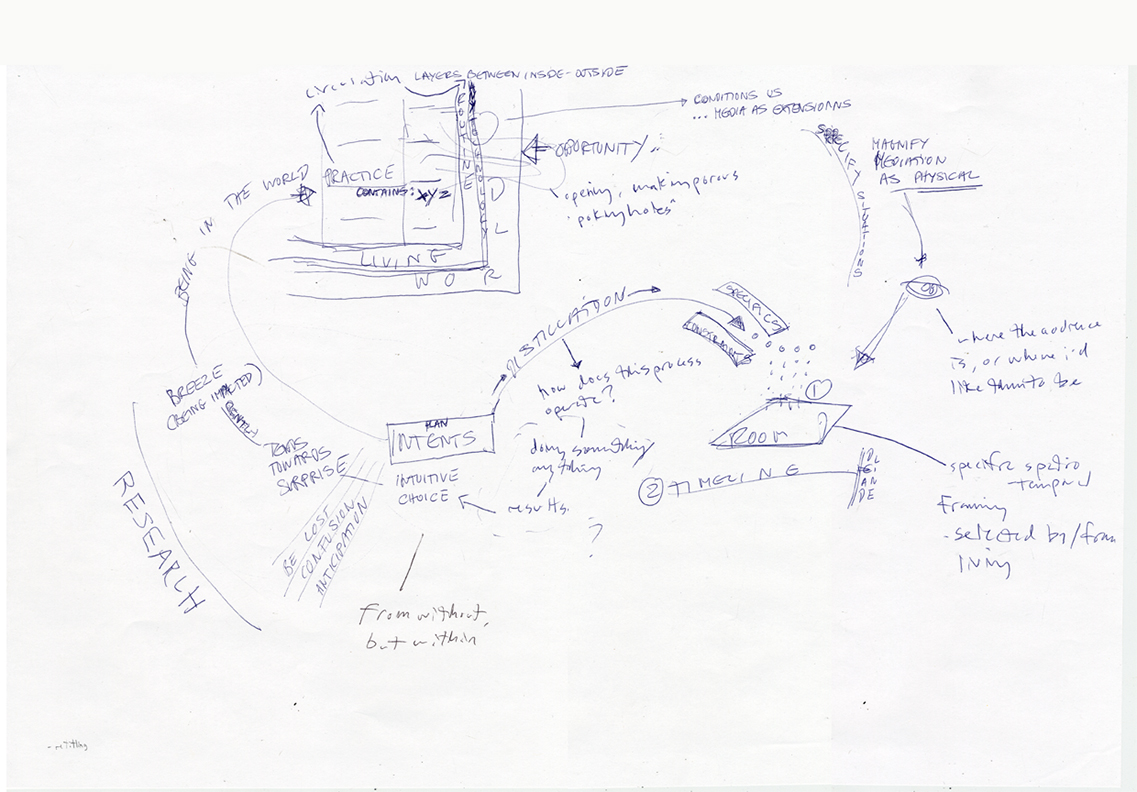 circulation LAYERS BETWEEN INSIDE-OUTSIDE
CONDITIONS US
... MEDIA AS EXTENSIONNS
ROUTINE
TECHNOLOGY
OPPORTUNITY:
opening, making porous
"poking holes"
PRACTICE
CONTAINS: XYZ
LIVING
WORLD
BEING IN THE WORLD
SPECIFY SITUATIONS
MAGNIFY
MEDIATION
AS PHYSICAL
where the audience
is, or where i'd
like them to be
DISTILLATION
SPECIFICS
CONSTRAINTS
how does this process
operate?
doing something
anything
results.
?
BREEZE
(BEING IMPACTED)
TENDS
TOWARDS
SURPRISE
PLAN
INTENTS
INTUITIVE
CHOICE
BE LOST
CONFUSION
ANTICIPATION
RESEARCH
From without,
but within
1
ROOM
2 TIMELINE
specific spatio
temporal
Framing
- selected by/from
living